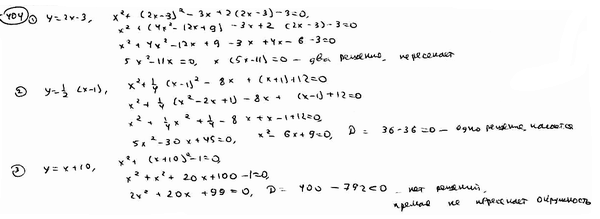 404 ① y=2x-3, x²+(2x-3)²-3x+2(2x-3)-3=0,
x²+(4x²-12x+9)-3x+2(2x-3)-3=0
x²+4x²-12x+9-3x+4x-6-3=0
5x²-11x=0, x(5x-11)=0 - два решения, пересекает
② y=½(x-1), x²+¼(x-1)²-8x+(x+1)+12=0
x²+¼(x²-2x+1)-8x+(x-1)+12=0
x²+¼x²+¼-8x+x-1+12=0,
5x²-30x+45=0, x²-6x+9=0, D=36-36=0 - одно решение, касается
③ y=x+10, x²+(x+10)²-1=0,
x²+x²+20x+100-1=0,
2x²+20x+99=0, D=400-792<0 - нет решений,
прямая не пересекает окружность